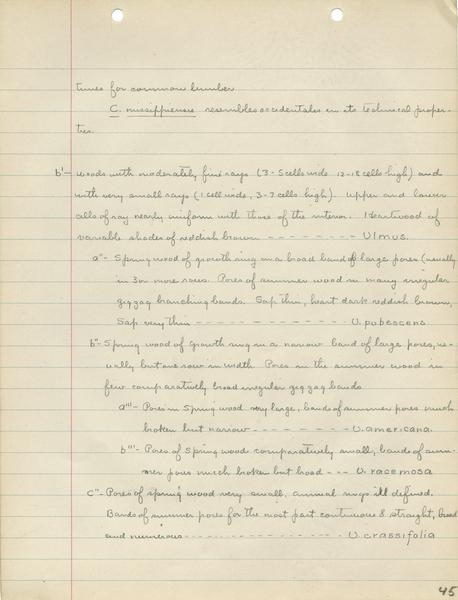 times for common lumber.
C. missippiensis resembles occidentales in its technical proper-
ties.
b'- woods with moderately fine rays (3-5 cells wide 12-18 cells high) and
with very small rays (1 cell wide, 3-7 cells high). Upper and lower
cells of ray nearly uniform with those of the interior. Heartwood of
variable shades of reddish brown - - - - - - - - - Ulmus.
a"- Spring wood of growth ring in a broad band of large pores (usually
in 3 or more rows. Pores of summer wood in many irregular
zigzag branching bands. Sap thin, heart dark reddish brown,
Sap very thin - - - - - - - - - - - - - - U. pubescens
b"- Spring wood of growth ring in a narrow band of large pores, us-
ually but one row in width. Pores in the summer wood in
few comparatively broad irregular zigzag bands
a'''- Pores in Spring wood very large, bands of summer pores much
broken but narrow - - - - - - - - - U. americana.
b'''- Pores of Spring wood comparatively small, bands of sum-
mer pores much broken but broad - - - U. racemosa
c"- Pores of spring wood very small, annual rings ill defined.
Bands of summer pores for the most part continuous & straight, broad
and numerous - - - - - - - - - - - - - - U. crassifolia
45